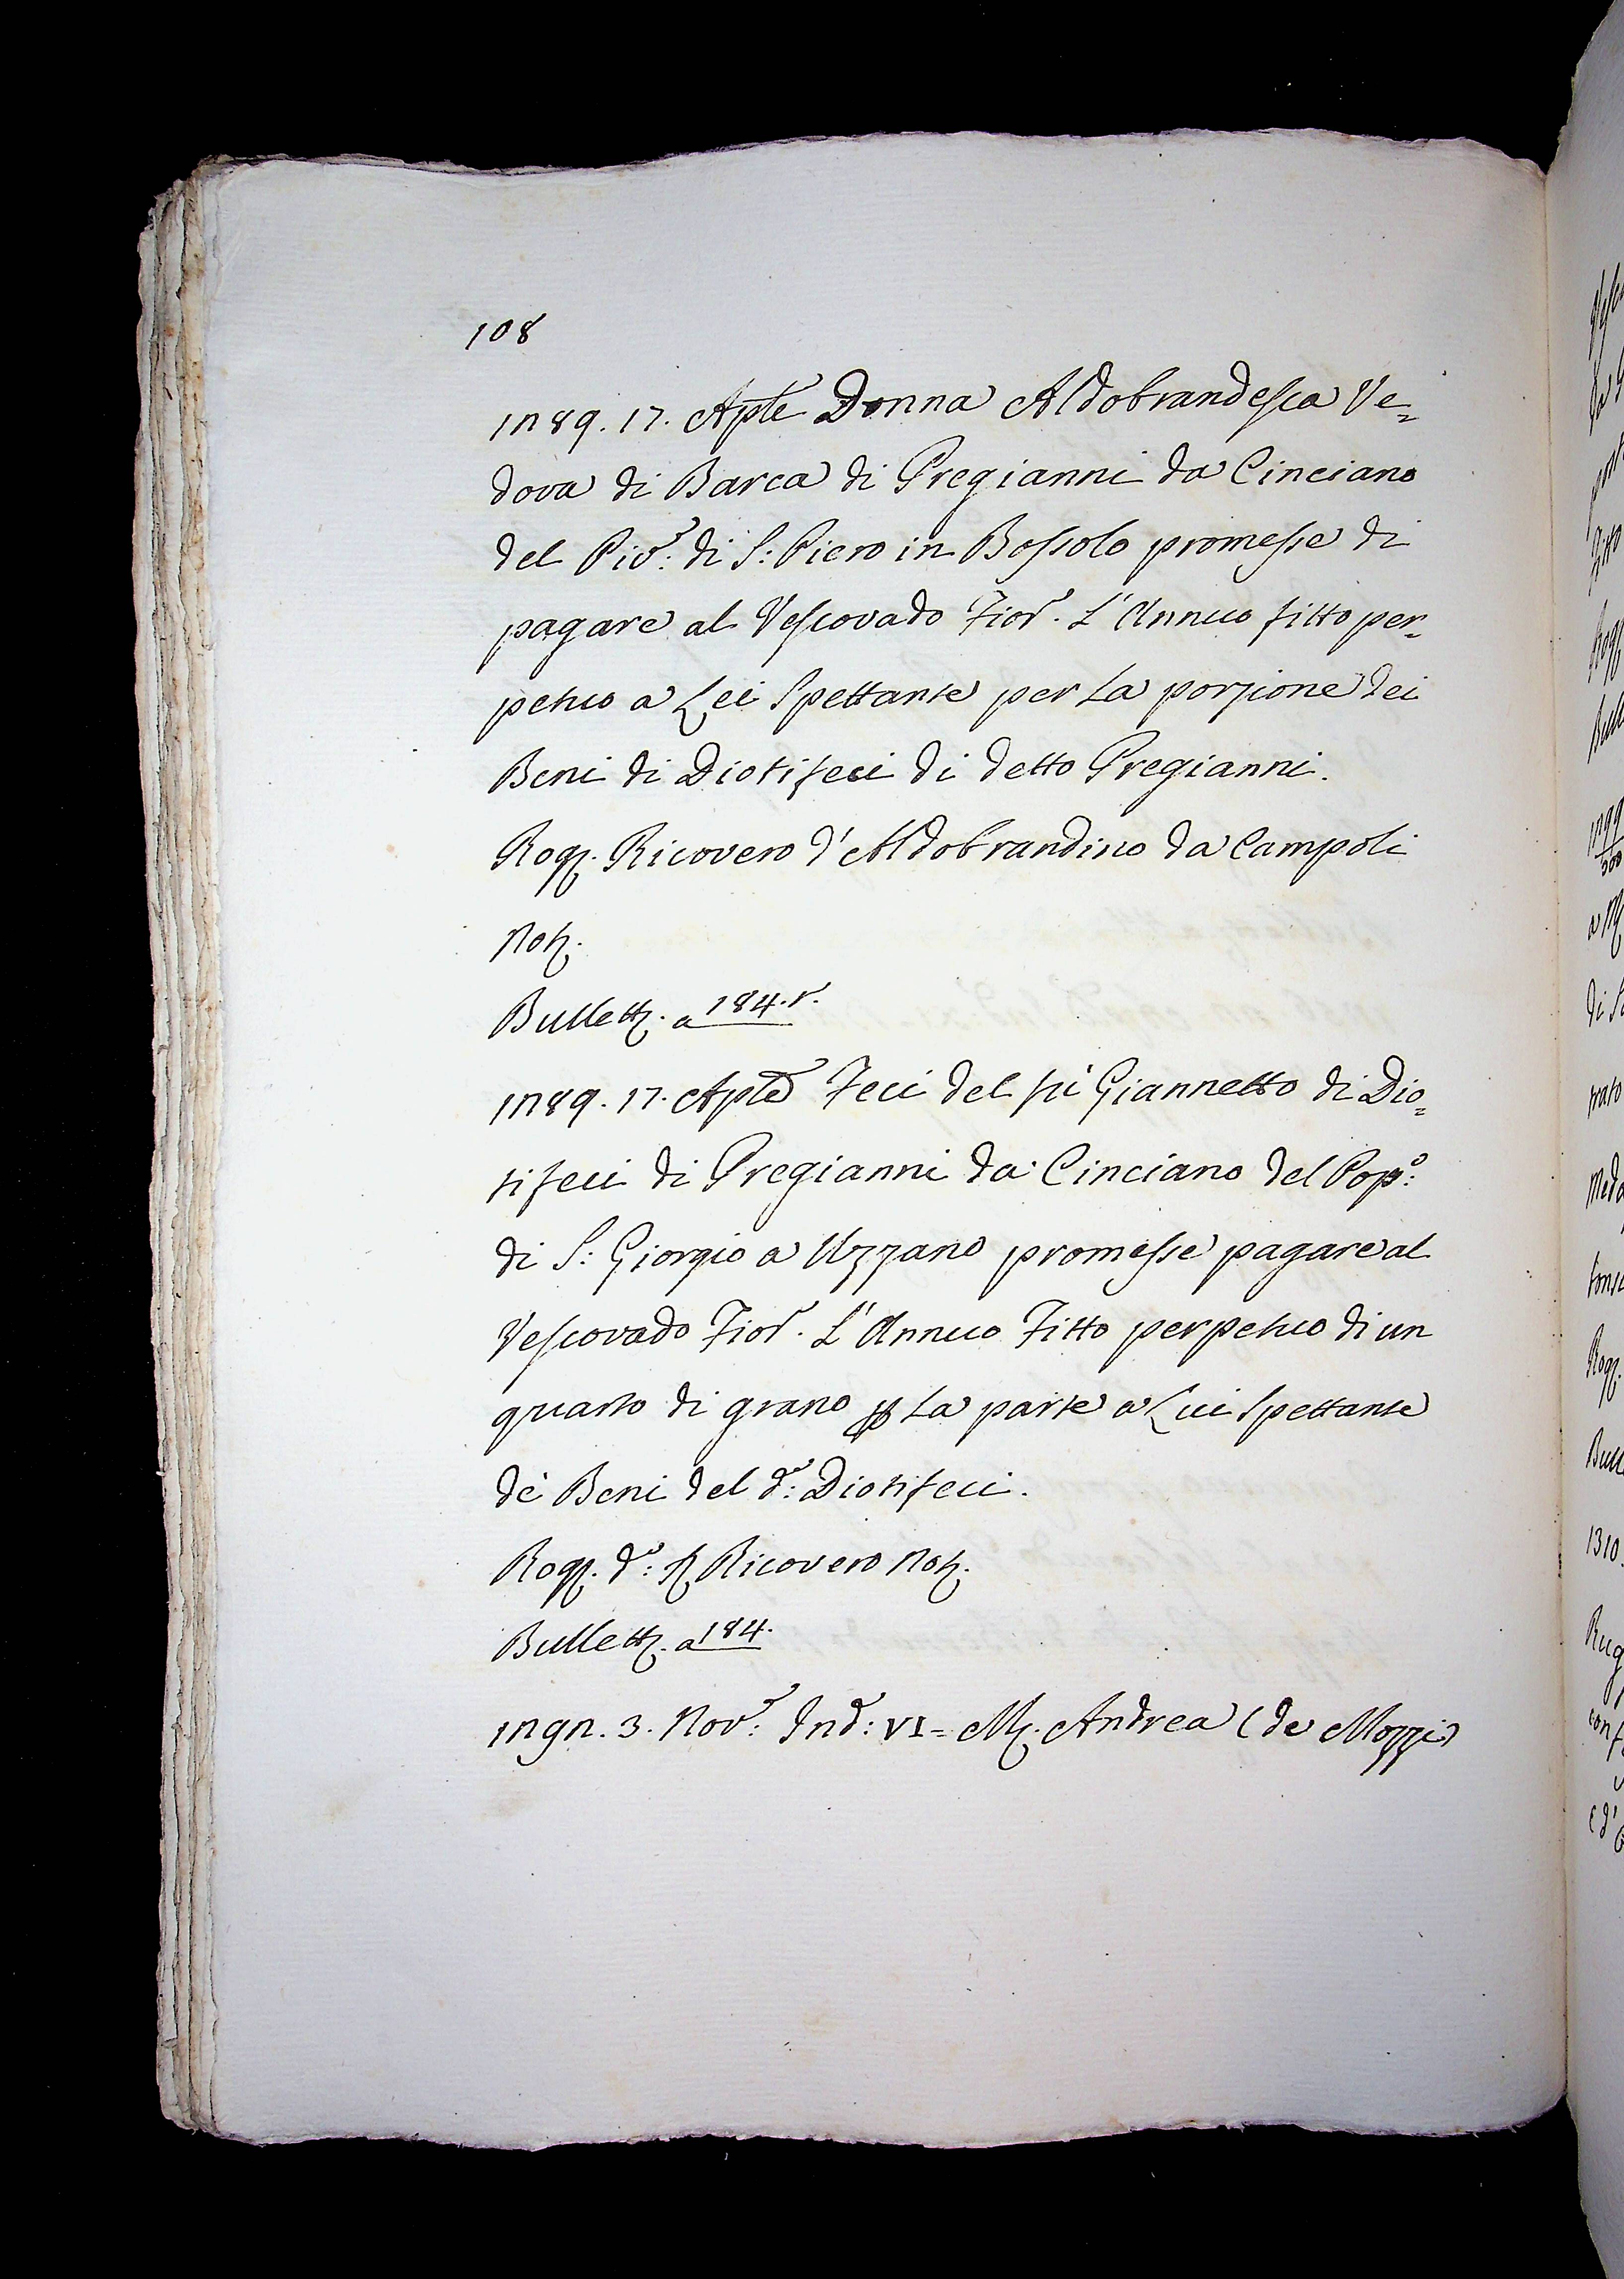 108
1289. 17. Aple Donna Aldobrandesca Ve=
dova di Barca di Pregianni da Cinciano
del Piv.e: di S: Piero in Bossolo promesse di
pagare al Vescovado Fior.o L'Annuo fitto per=
petuo a Lei Spettante per La porzione dei
Beni di Diotifeci di detto Pregianni.
Rog. Ricovero d'Aldobrandino da Campoli
Not.
Bullett. a 184.r.
1289. 17. Aple Feci del fù Giannetto di Dio=
tifeci di Pregianni da Cinciano del Pop.o:
di S: Giorgio a Uzzano promesse pagare al
Vescovado Fior.o L'Annuo Fitto perpetuo di un
quarto di grano p La parte a Lui Spettante
de' Beni del d.o: Diotifeci.
Rog. d.o: Ricovero Not.
Bullett. a 184.
1292. 3. Nov.e: Ind: VI= M. Andrea (de Mozzi)